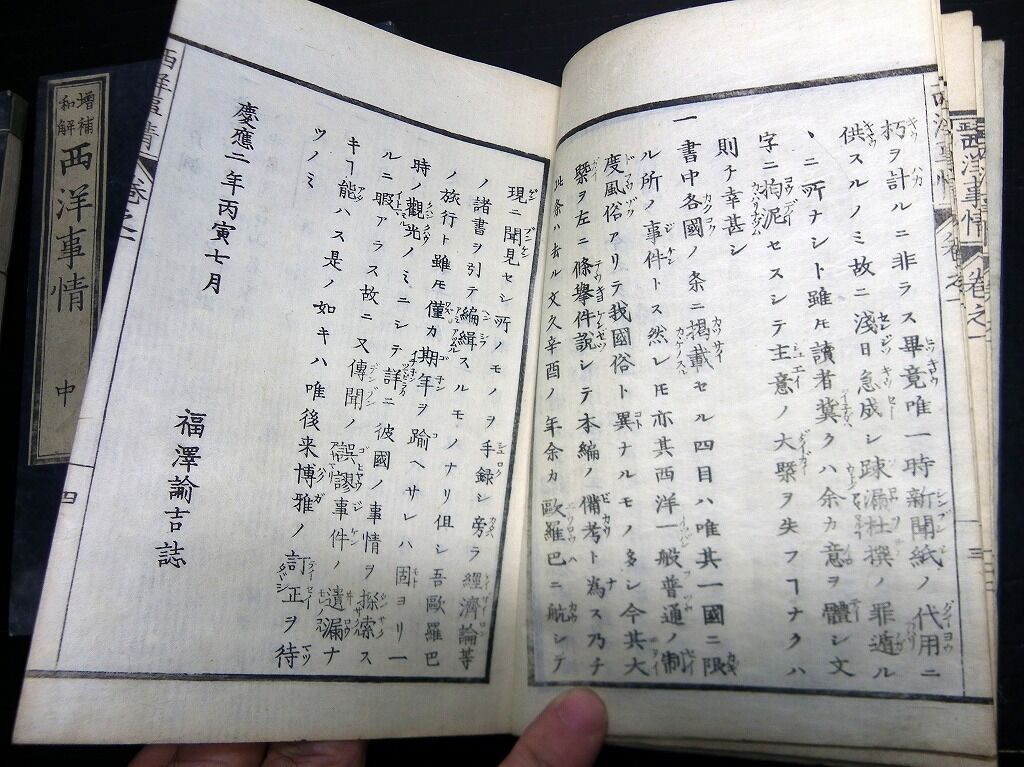 朽ヲ計ルニ非ラス畢竟唯一時新聞紙ノ代用ニ
供スルノミ故ニ淺日急成シ疎漏杜撰ノ罪遁ル
、ニ所ナシト雖モ讀者冀クハ余カ意ヲ體シ文
字ニ拘泥セスシテ主意ノ大槩ヲ失フヿナクハ
則チ幸甚シ
一書中各國ノ条ニ掲載セル四目ハ唯其一國ニ限
ル所ノ事件トス然レモ亦其西洋一般普通ノ制
度風俗アリテ我國俗ト異ナルモノ多シ今其大
槩ヲ左ニ條擧件説シテ本編ノ備考ト為ス乃チ
此条ハ去ル文久辛酉ノ年余カ歐羅巴ニ航シテ
現ニ聞見セシ所ノモノヲ手録シ旁ラ經濟論等
ノ諸書ヲ引テ編緝スルモノナリ但シ吾歐羅巴
ノ旅行ト雖モ僅カ期年ヲ踰ヘサレハ固ヨリ一
時ノ觀光ノミニシテ詳ニ彼國ノ事情ヲ探索ス
ルニ暇アラス故ニ又傳聞ノ誤謬事件ノ遺漏ナ
キヿ能ハス是ノ如キハ唯後来博雅ノ訂正ヲ待
ツノミ
慶應二年丙寅七月
福澤諭吉誌
西洋事情
卷之一
四
増補
和解
西洋事情
中
西洋事情
卷之一
三
西洋事情
卷之一